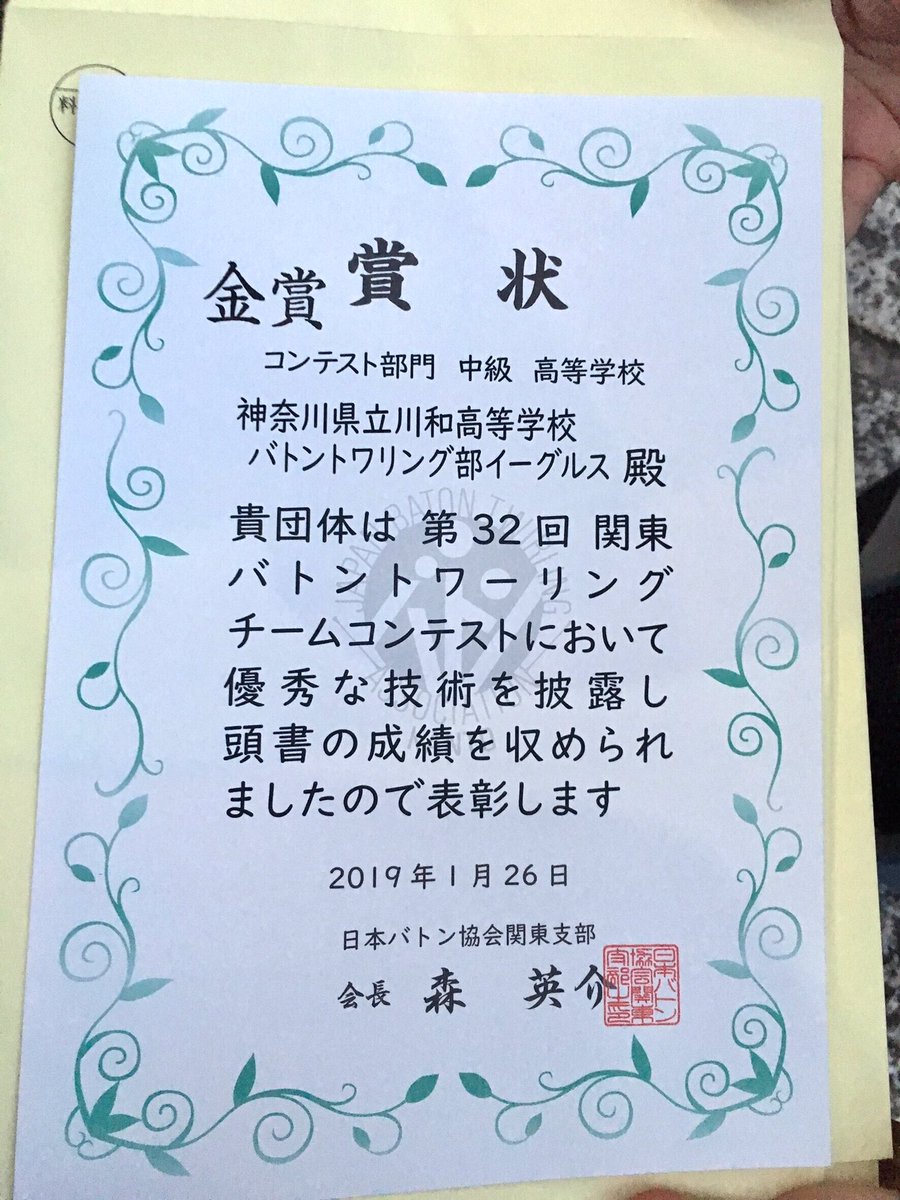 金賞 賞 状
コンテスト部門 中級 高等学校
神奈川県立川和高等学校
バトントワリング部イーグルス 殿
貴団体は 第32回 関東
バトントワーリング
チームコンテストにおいて
優秀な技術を披露し
頭書の成績を収められ
ましたので表彰します
2019年1月26日
日本バトン協会関東支部
会長 森 英介